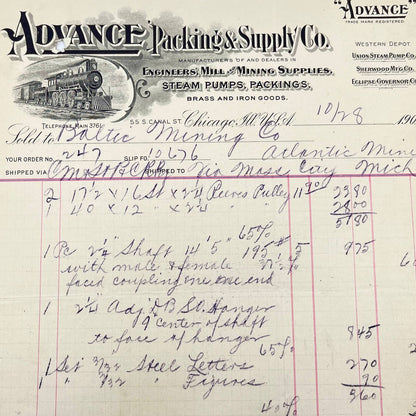 "ADVANCE"
TRADE MARK REGISTERED.
"ADVANCE" Packing & Supply Co.
MANUFACTURERS OF AND DEALERS IN
ENGINEERS, MILL AND MINING SUPPLIES,
STEAM PUMPS, PACKINGS,
BRASS AND IRON GOODS.
WESTERN DEPOT
UNION STEAM PUMP CO.
SHERWOOD MFG. CO.
ECLIPSE GOVERNOR CO.
TELEPHONE, MAIN 3761.
55 S. CANAL ST. Chicago, Ill. 10/28 190
Sold to Baltic Mining Co
YOUR ORDER No. 247 SLIP FO. 10676 Atlantic Mine
SHIPPED VIA CM & St P SHIPPED TO Via Mass City Mich
2 17½ x 16 St x 2¼ Reeves Pulley 11.90 23 80
1 40 x 12 x 2¼ " " 28 00
51 80
65%
1 Pc 2¼ Shaft 14' 5" 195# 5 9 75
with male & female
faced coupling one end
1 2¼ Adj D B St. Hanger
9" center of shaft
to face of hanger 8 45
65%
1 Set 3/32 Steel Letters 2 70
1 " 3/32 " Figures 90
3 60
40%